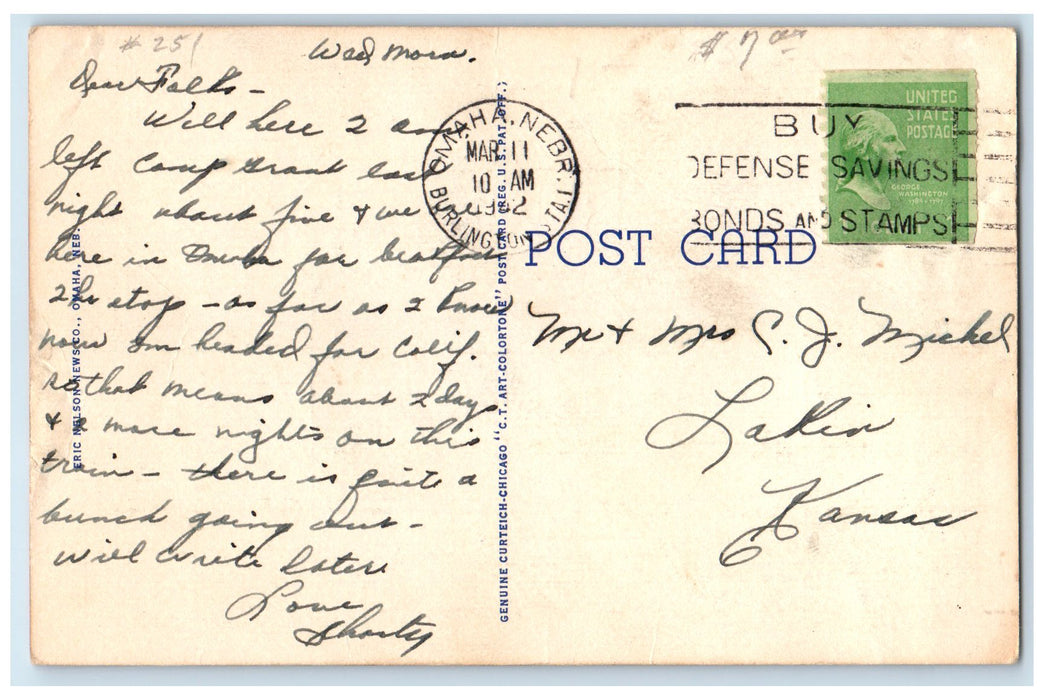 # 251
Wed Morn.
# 7 00
Dear Folks -
Well here I am
left Camp Grant last
night about five & we are
here in Omaha for breakfast
2 hr stop - as far as I know
now Im headed for Calif.
so that means about 2 days
& 2 more nights on this
train - there is quite a
bunch going out -
will write later
Love
Shorty
OMAHA, NEBR.
MAR 11
10 AM
1942
BURLINGTON STA.
BUY
DEFENSE SAVINGS
BONDS AND STAMPS
UNITED
STATES
POSTAGE
GEORGE
WASHINGTON
POST CARD
Mr & Mrs C. J. Michel
Lakin
Kansas
ERIC NELSON NEWS CO., OMAHA, NEB.
GENUINE CURTEICH-CHICAGO "C.T. ART-COLORTONE" POST CARD (REG. U.S. PAT. OFF.)